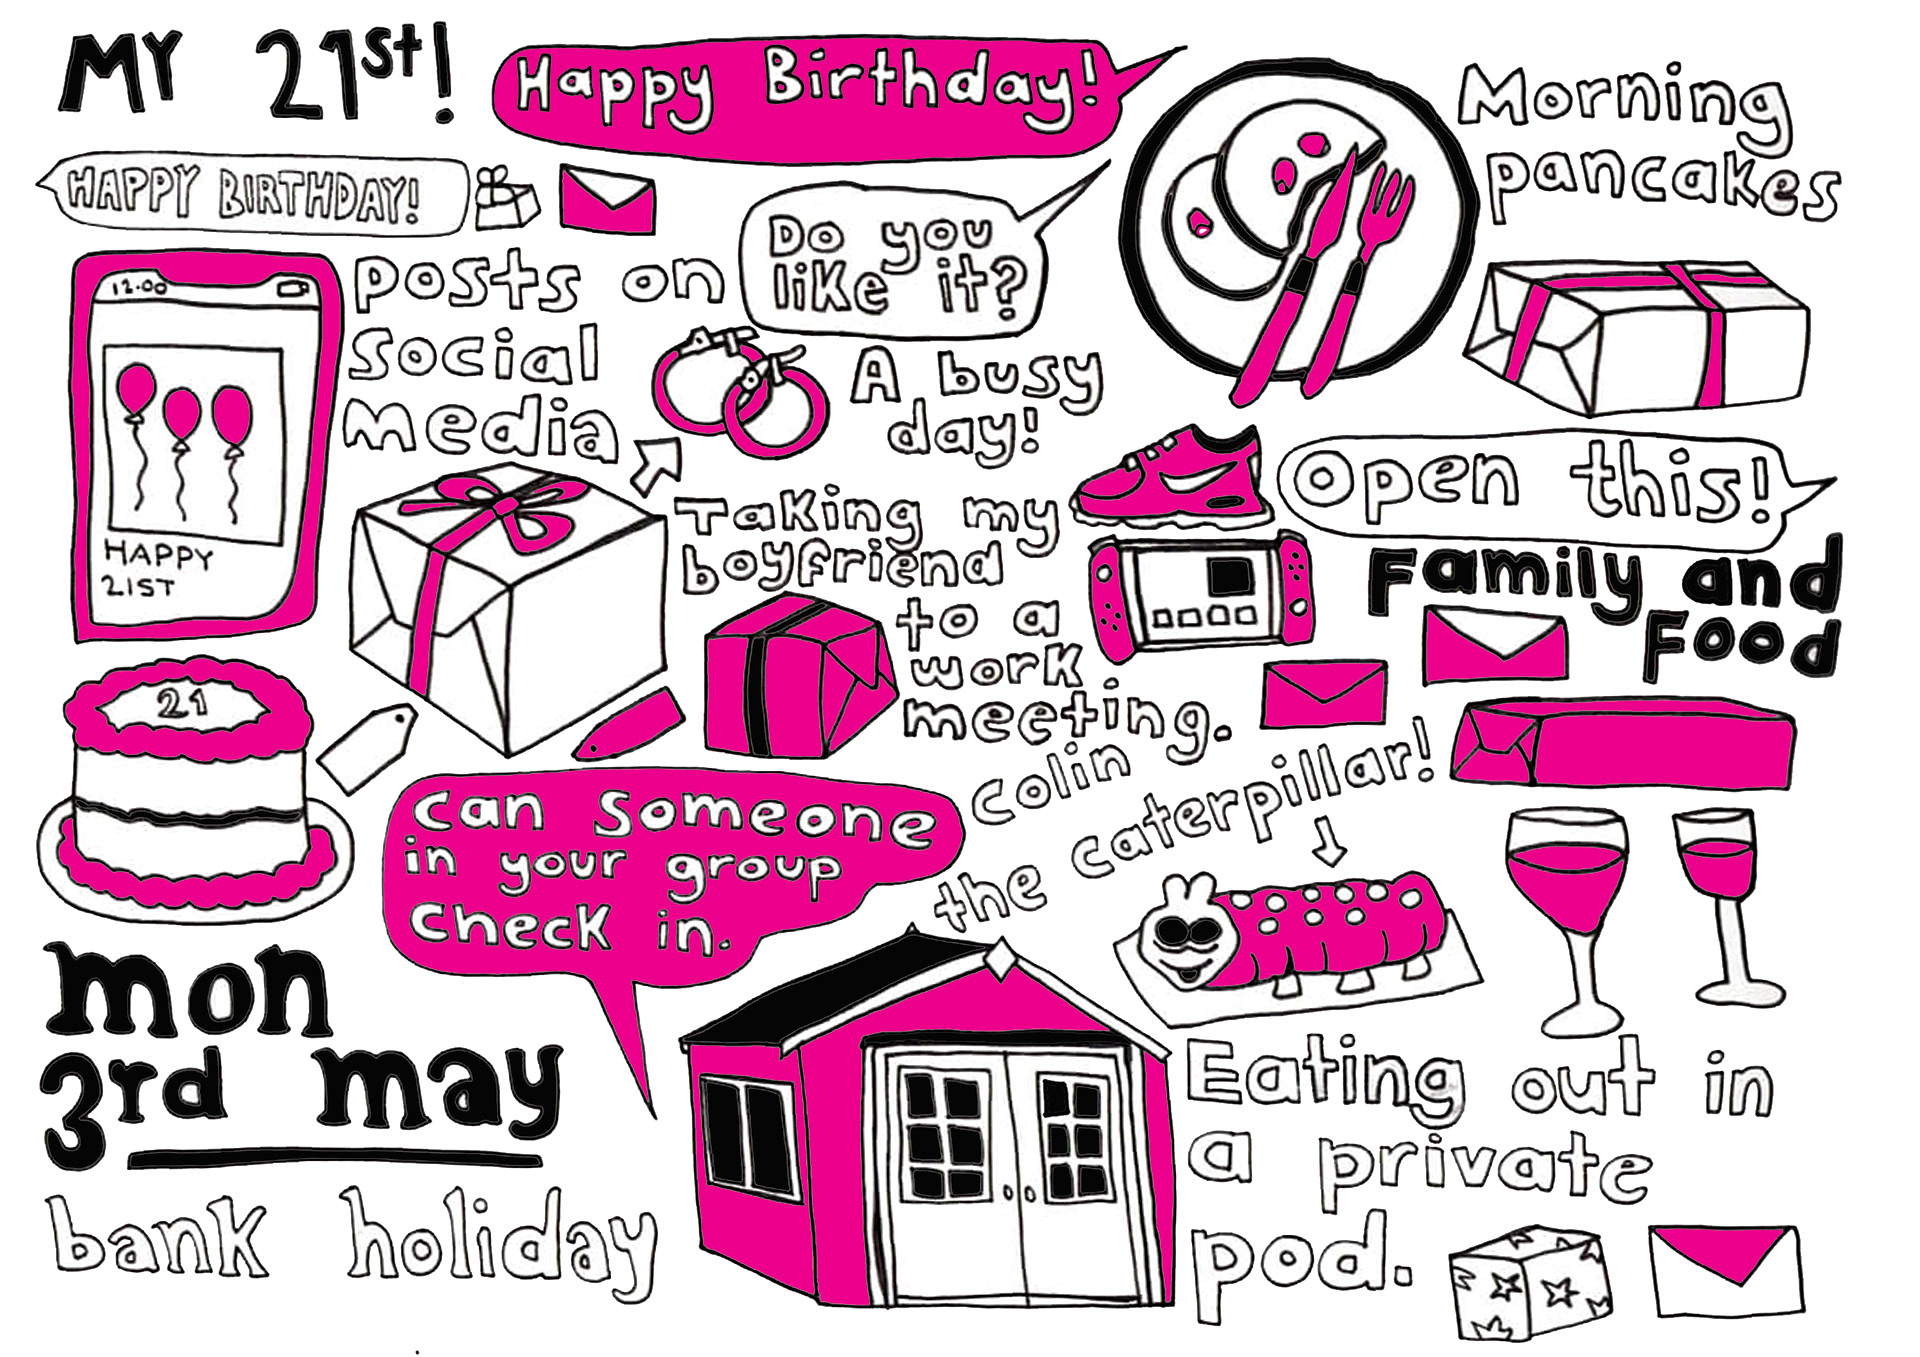 MY 21st!
Happy Birthday!
Morning
pancakes
HAPPY BIRTHDAY!
Do you
like it?
12.00
HAPPY
21ST
posts on
social
media
A busy
day!
Open this!
Taking my
boyfriend
to a
work
meeting.
Family and
Food
21
Can someone
in your group
Check in.
Colin
the caterpillar!
mon
3rd may
bank holiday
Eating out in
a private
pod.